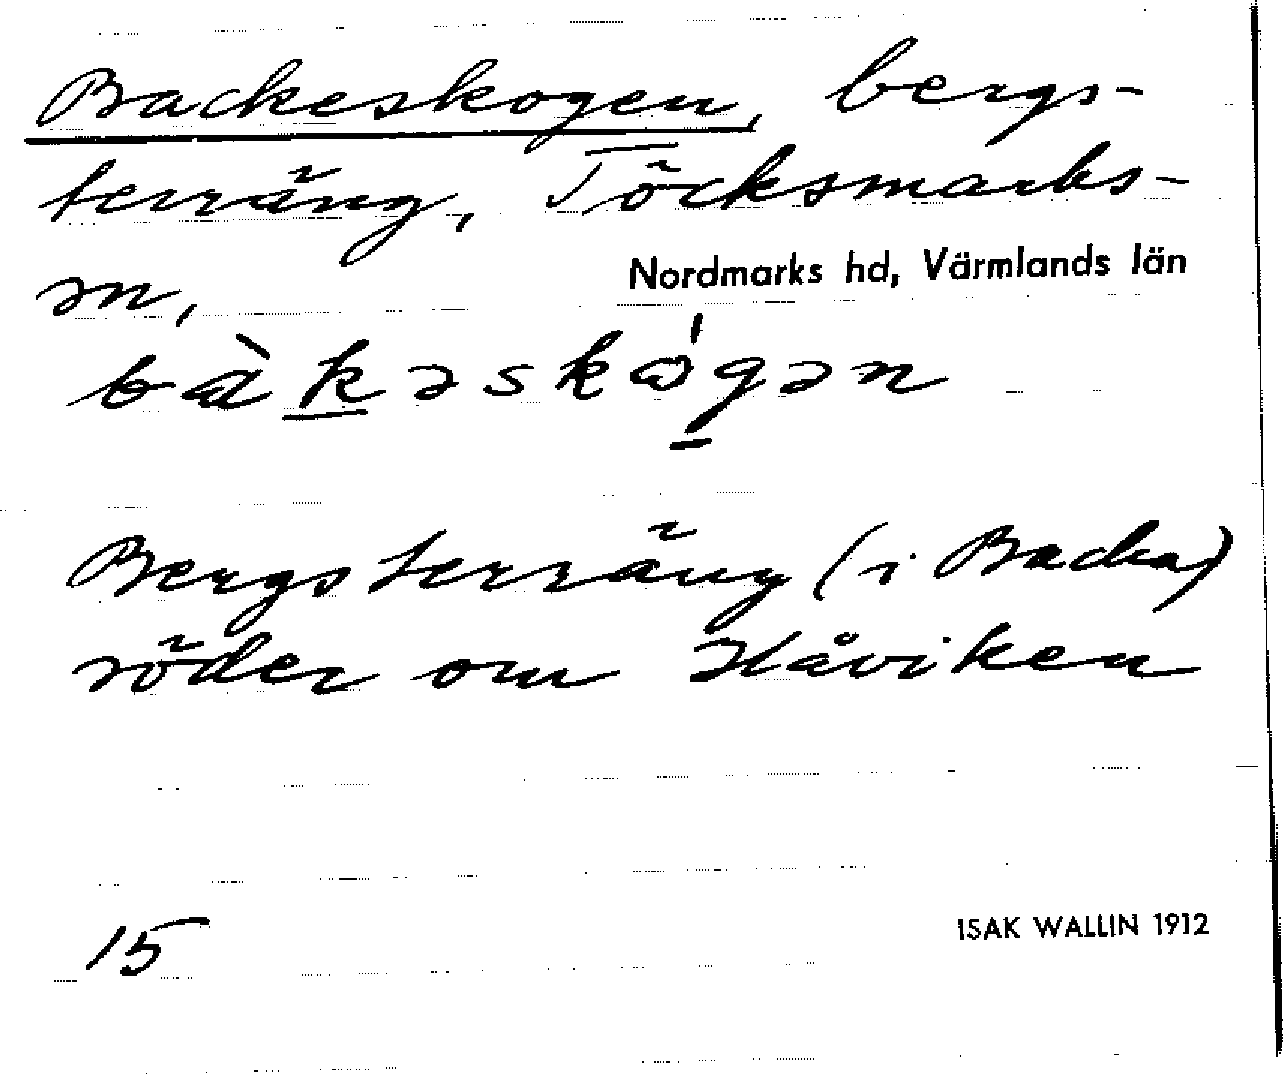 Backeskogen, bergs-
terräng, Töcksmarks-
Nordmarks hd, Värmlands län
sn,
bàkəskǿgən
Bergsterräng (i Backa)
söder om Håviken
15
ISAK WALLIN 1912